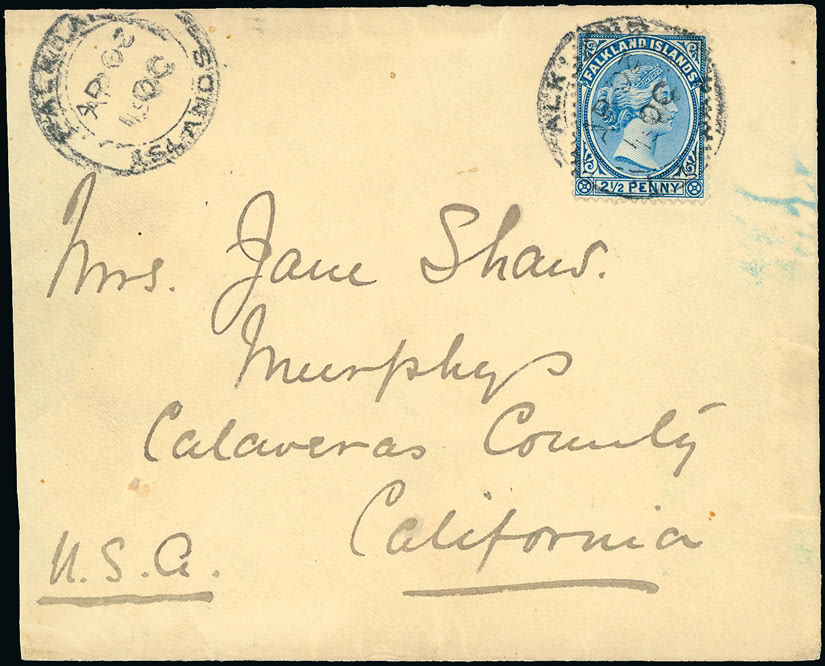 FALKLAND ISLANDS
AP 02
FALKLAND ISLANDS
2½ PENNY
Mrs. Jane Shaw.
Murphys
Calaveras County
California
U.S.A.